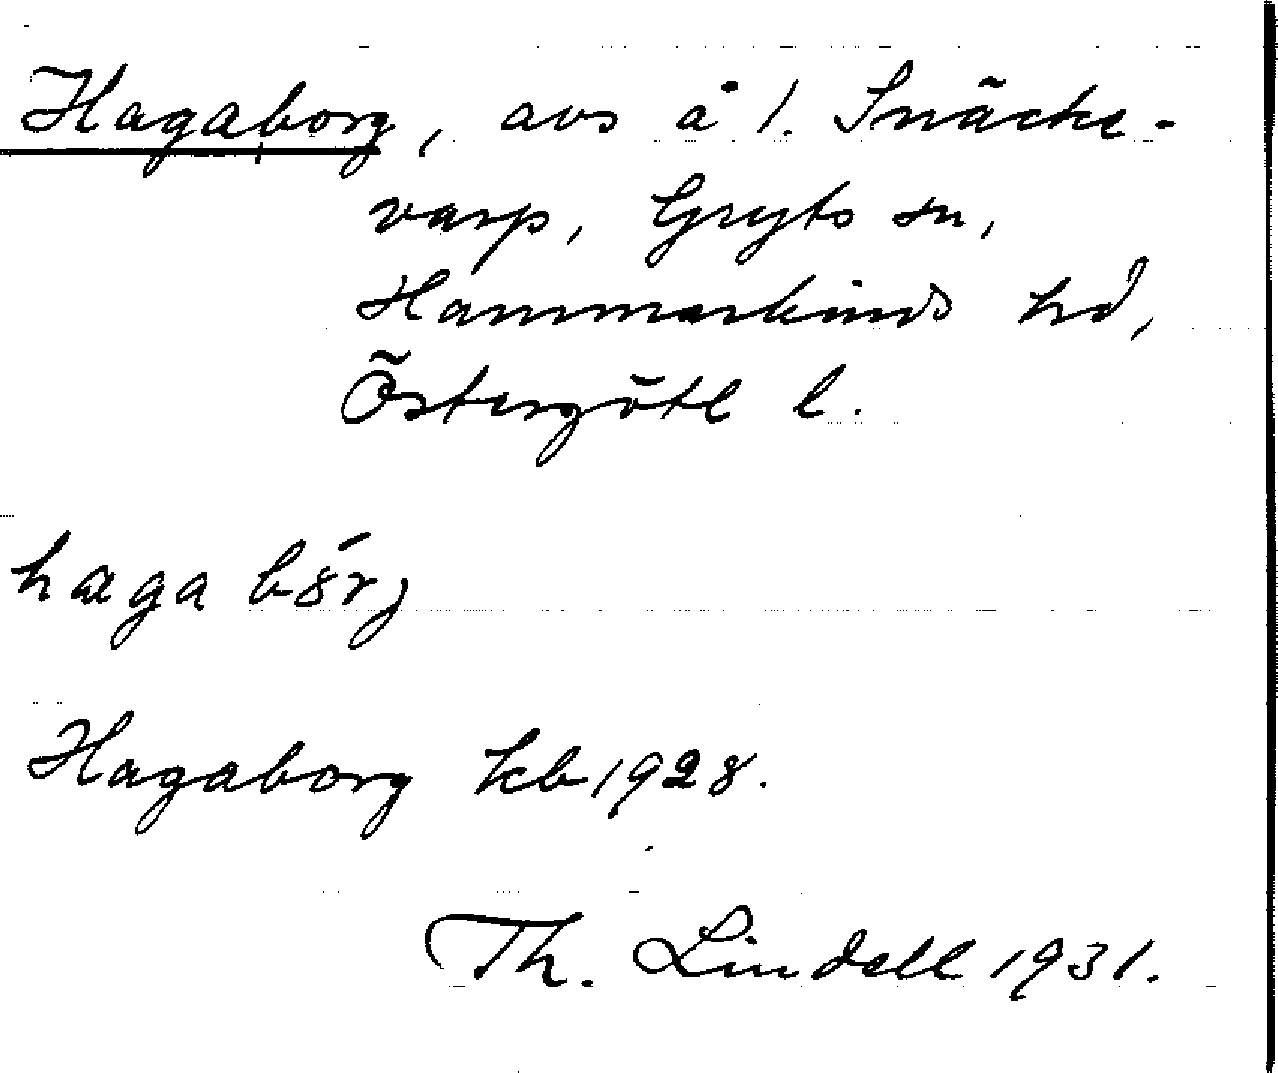 Hagaborg, avs å 1. Snäcke-
varp, Gryts sn,
Hammarkinds hd,
Östergötl l.
haga bǻrj
Hagaborg kb 1928.
Th. Lindell 1931.